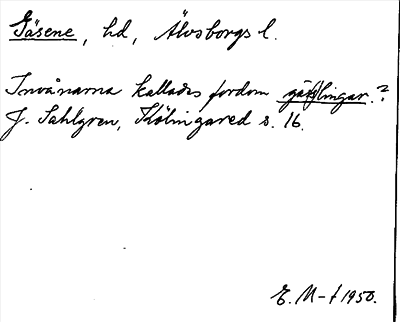 Gäsene, hd, Älvsborgs l.
Invånarna kallades fordom gä(s)lingar.?
J. Sahlgren, Kölingared s. 16.
E. M-t 1950.